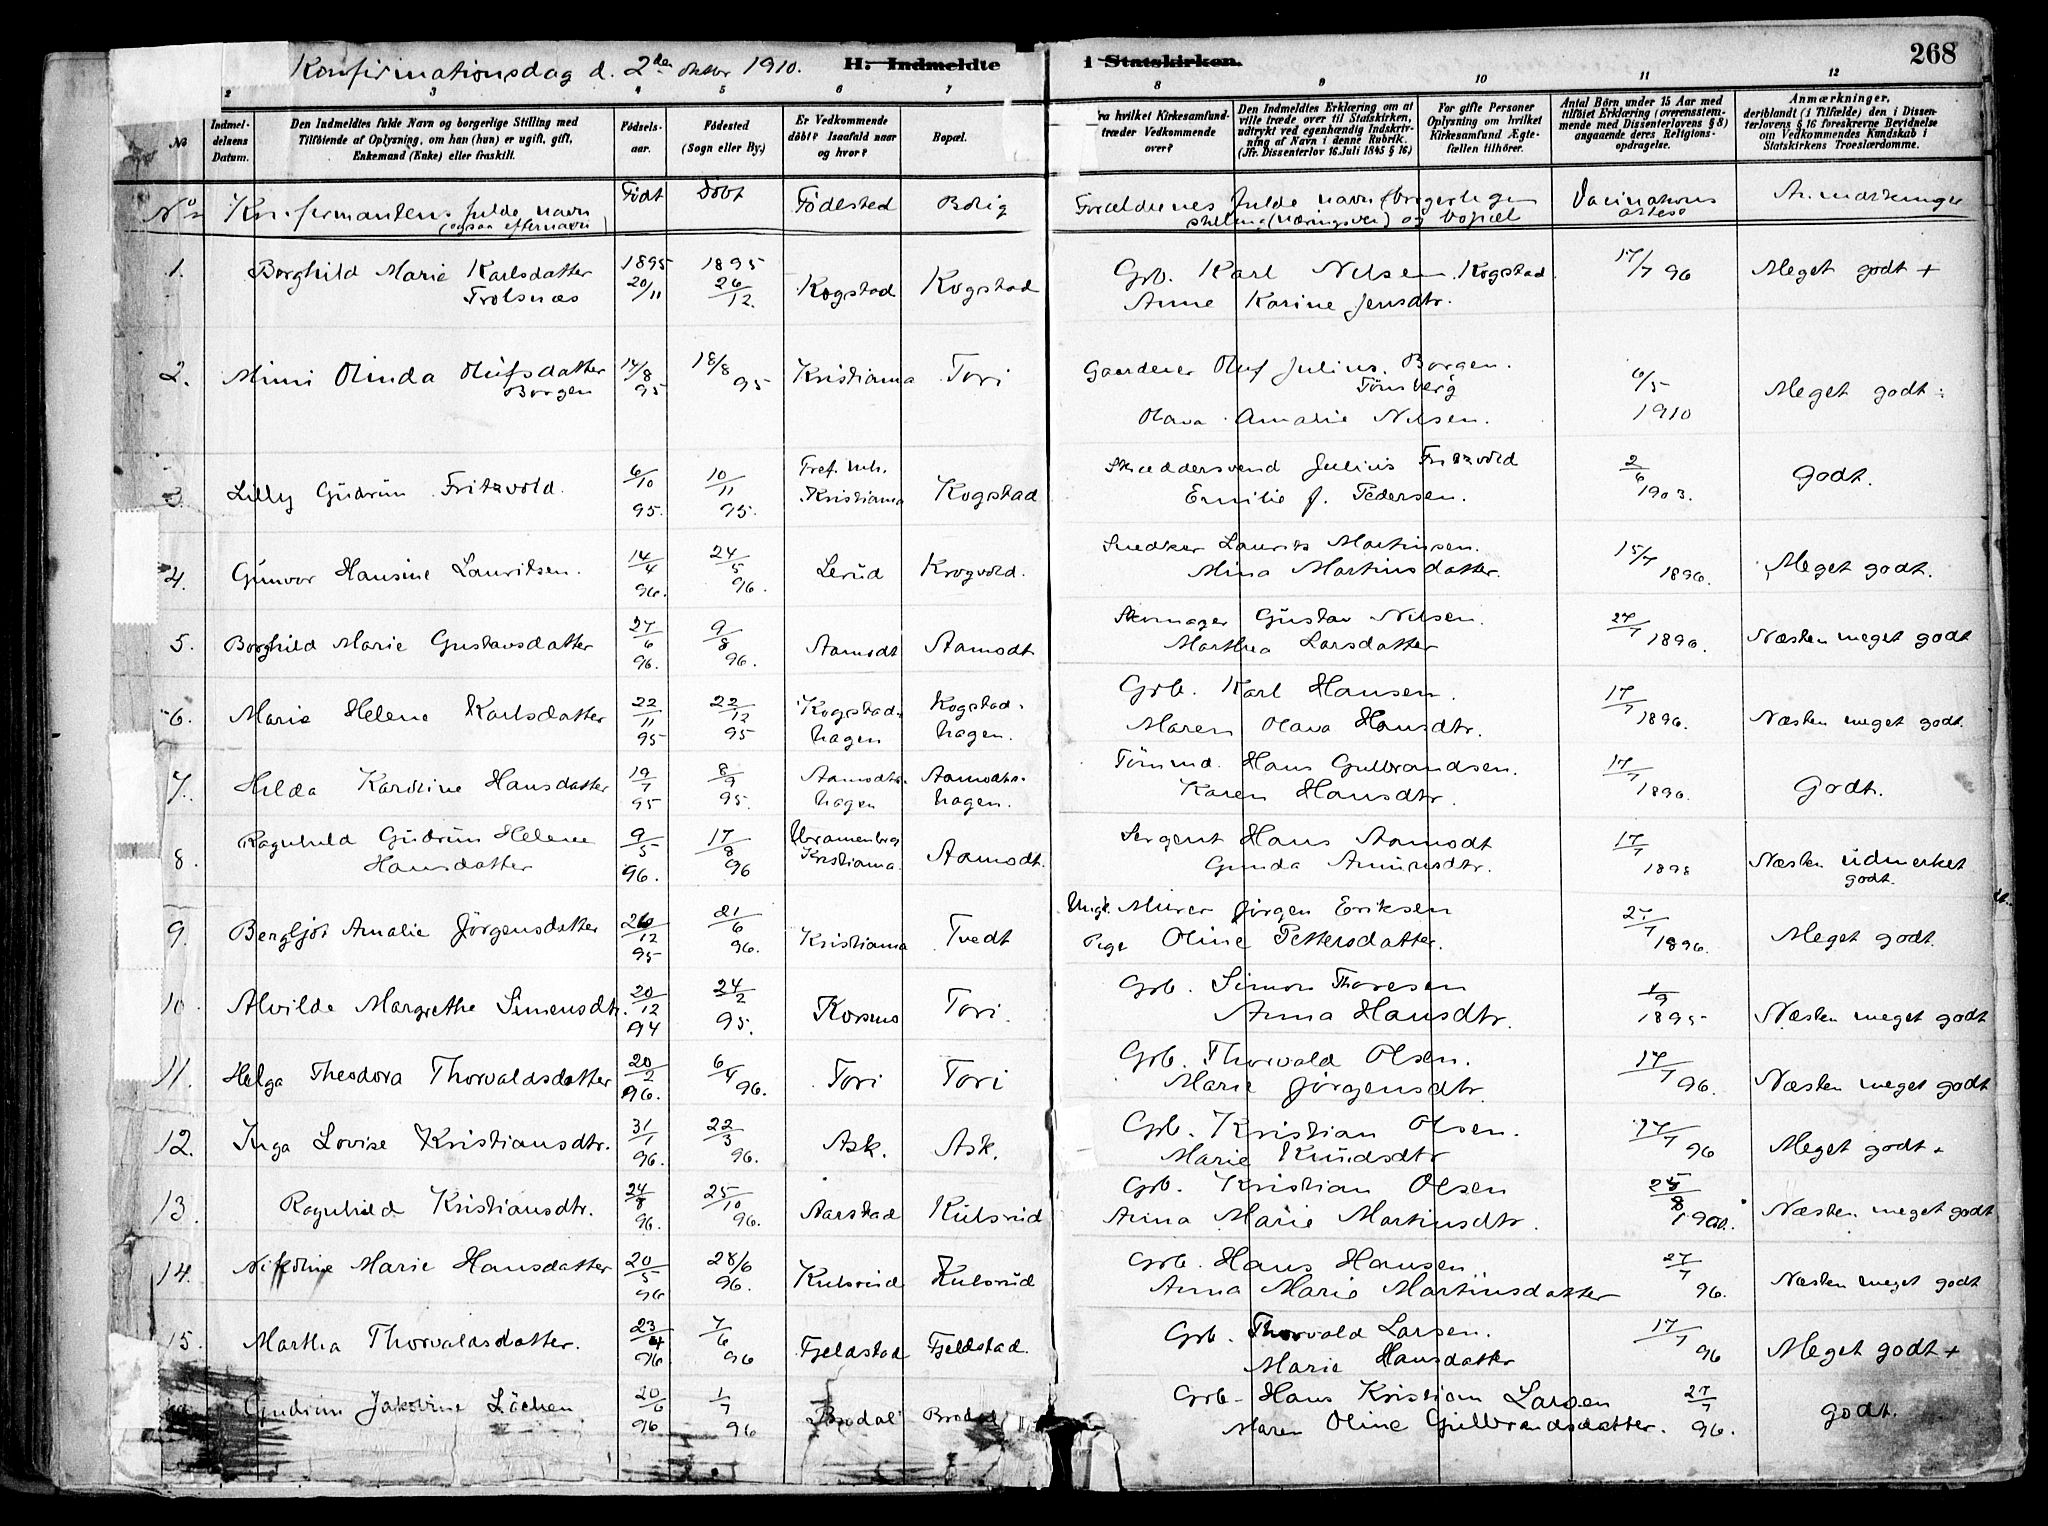 Konfirmationsdag d. 2den oktbr 1910. H. Indmeldte i Statskirken. 268
2 3 4 5 6 7 8 9 10 11 12
No
Indmeldelsens Datum.
Den Indmeldtes fulde Navn og borgerlige Stilling med Tilføiende af Oplysning, om han (hun) er ugift, gift, Enkemand (Enke) eller fraskilt.
Fødselsaar.
Fødested (Sogn eller By.)
Er Vedkommende døbt? Isaafald naar og hvor?
Bopæl.
ra hvilket Kirkesamfund træder Vedkommende over?
Den Indmeldtes Erklæring om at ville træde over til Statskirken, udtrykt ved egenhændig Indskrivning af Navn i denne Rubrik. (Jfr. Dissenterlov 16. Juli 1845 § 16)
For gifte Personer Oplysning om hvilket Kirkesamfund Ægtefællen tilhører.
Antal Børn under 15 Aar med tilføiet Erklæring (overensstemmende med Dissenterlovens § 8) angaaende deres Religionsopdragelse.
Anmærkninger, deriblandt (i Tilfælde) den i Dissenterlovens § 16 foreskrevne Bevidnelse om Vedkommendes Kundskab i Statskirkens Troeslærdomme.
No Konfirmantens fulde navn (ogsaa efternavn) Født Døbt Fødested Bolig Forældrenes fulde navn (borgerlige stilling (næringsvei) og bopæl Vacinations attest Anmærkninger
1. Borghild Marie Karlsdatter Trolsnæs 1895 20/11 1895 26/12 Kogstad Kogstad Grb. Karl Nilsen Kogstad Anne Karine Jensdtr. 17/7 96 Meget godt +
2. Mimi Olinda Olufsdatter Borgen 14/8 95 18/8 95 Kristiania Tori Gaardeier Oluf Julius Borgen. Tønsberg Olava Amalie Nilsen. 6/5 1910 Meget godt ÷
3. Lilly Gudrun Fritzvold. 6/10 95. 10/11 95. Kristiania Kogstad Skræddersvend Julius Fritzvold Emilie J. Pedersen. 2/6 1903. Godt.
4. Gunvor Hansine Lauritsen. 14/4 96. 24/5 96. Lerud Krogvold. Snedker Laurits Martinsen. Mina Martinsdatter. 15/7 1896. Meget godt.
5. Borghild Marie Gustavsdatter 27/6 96. 9/8 96. Aamodt Aamodt Skomager Gustav Nilsen. Marthea Larsdatter 27/7 1896. Næsten meget godt
6. Marie Helene Karlsdatter 22/11 95 22/12 95 Kogstadhagen Kogstadhagen. Grb. Karl Hansen. Maren Olava Hansdtr. 17/7 1896. Næsten meget godt.
7. Helda Karoline Hansdatter 19/7 95 8/9 95. Aamodtshagen Aamodtshagen. Tømmd. Hans Gulbrandsen. Karen Hansdtr. 17/7 1896. Godt.
8. Ragnhild Gudrun Helene Hansdatter 9/5 96. 17/8 96 Kristiania Aamodt. Sergent Hans Aamodt Gunda Amundsdtr. 17/7 1898 Næsten udmerket godt.
9. Bergljot Amalie Jørgensdatter 26/12 95 21/6 96. Kristiania Tvedt Ungk. Murer Jørgen Eriksen Pige Oline Pettersdatter. 27/7 1896. Meget godt.
10. Alvilde Margrethe Simensdtr. 20/12 94 24/2 95. Korsmo Tori. Grb. Simon Thoresen Anna Hansdtr. 1/9 1895 Næsten meget godt
11. Helga Theodora Thorvaldsdatter 20/2 96. 6/4 96. Tori Tori Grb. Thorvald Olsen. Marie Jørgensdtr. 17/7 96. Næsten meget godt
12. Inga Lovise Kristiansdtr. 31/1 96. 22/3 96. Ask. Ask. Grb. Kristian Olsen. Marie Knudsdtr 17/7 96 Meget godt +
13. Ragnhild Kristiansdtr. 24/8 96. 25/10 96. Aarstad Kulsrud Grb. Kristian Olsen Anna Marie Martinsdtr. Næsten meget godt
14. Nikoline Marie Hansdatter 20/5 96 28/6 96. Kulsrud Kulsrud Grb. Hans Hansen Anna Marie Martinsdatter 27/7 96. Næsten meget godt
15. Martha Thorvaldsdatter. 23/4 96 7/6 96 Fjeldstad Fjeldstad. Grb. Thorvald Larsen. Marie Hansdatter 17/7 96 Meget godt +
Gudrun Jakobine Löchen 20/6 96 1/7 96 Brodal Brodal Grb. Hans Kristian Larsen Maren Oline Gulbrandsdatter. 27/7 96. godt.